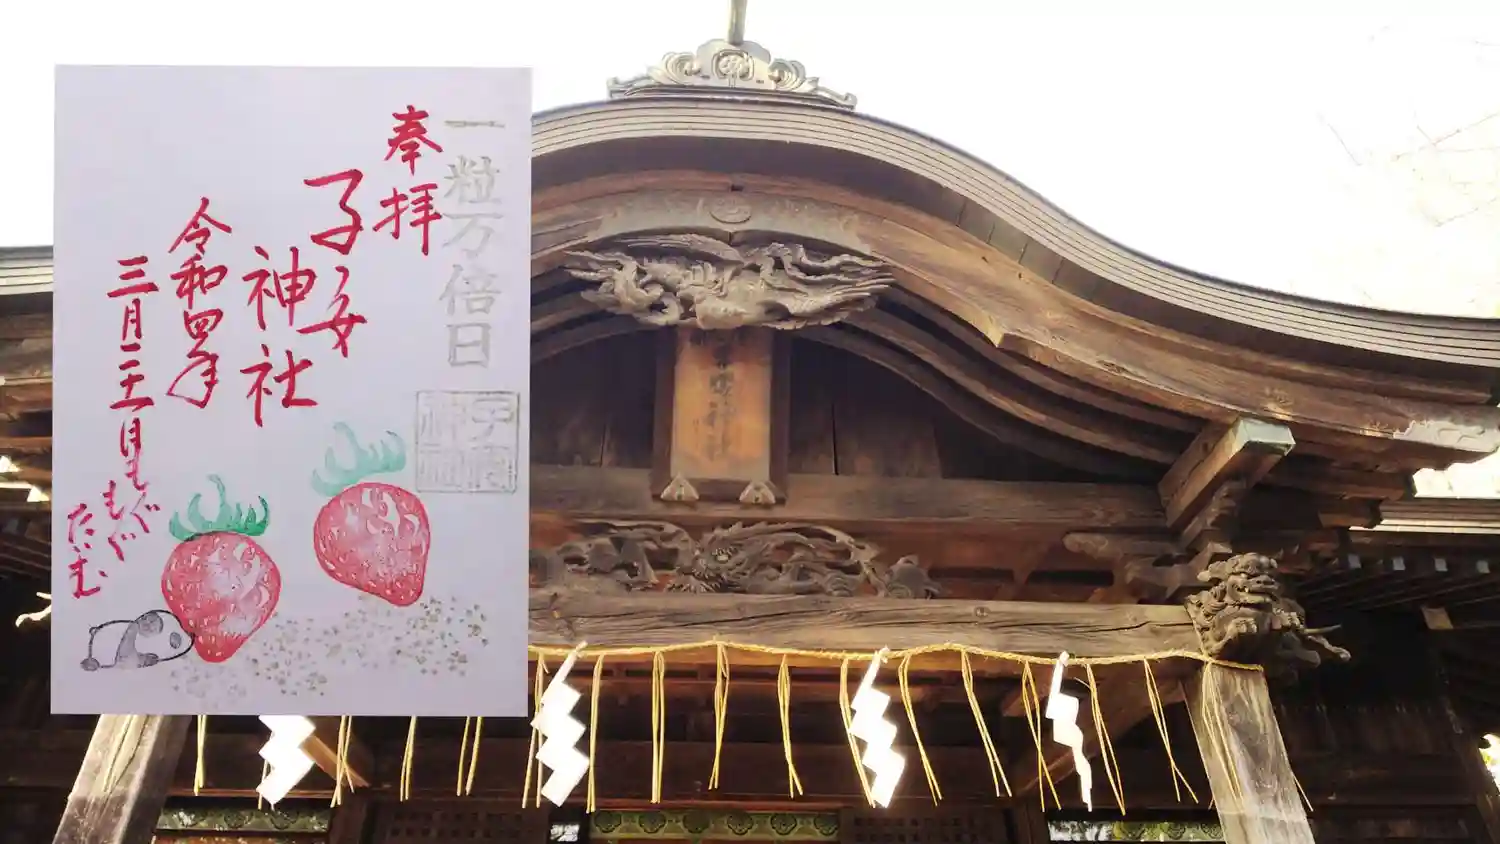 一粒万倍日
奉拝
子安神社
令和四年
三月二十一日
もぐ
もぐ
たいむ
子安
神社